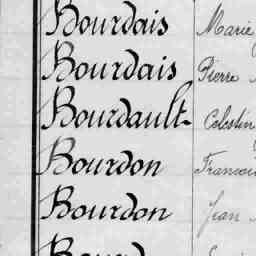 Bourdais Marie
Bourdais Pierre
Bourdault Celestin
Bourdon
Bourdon Jean